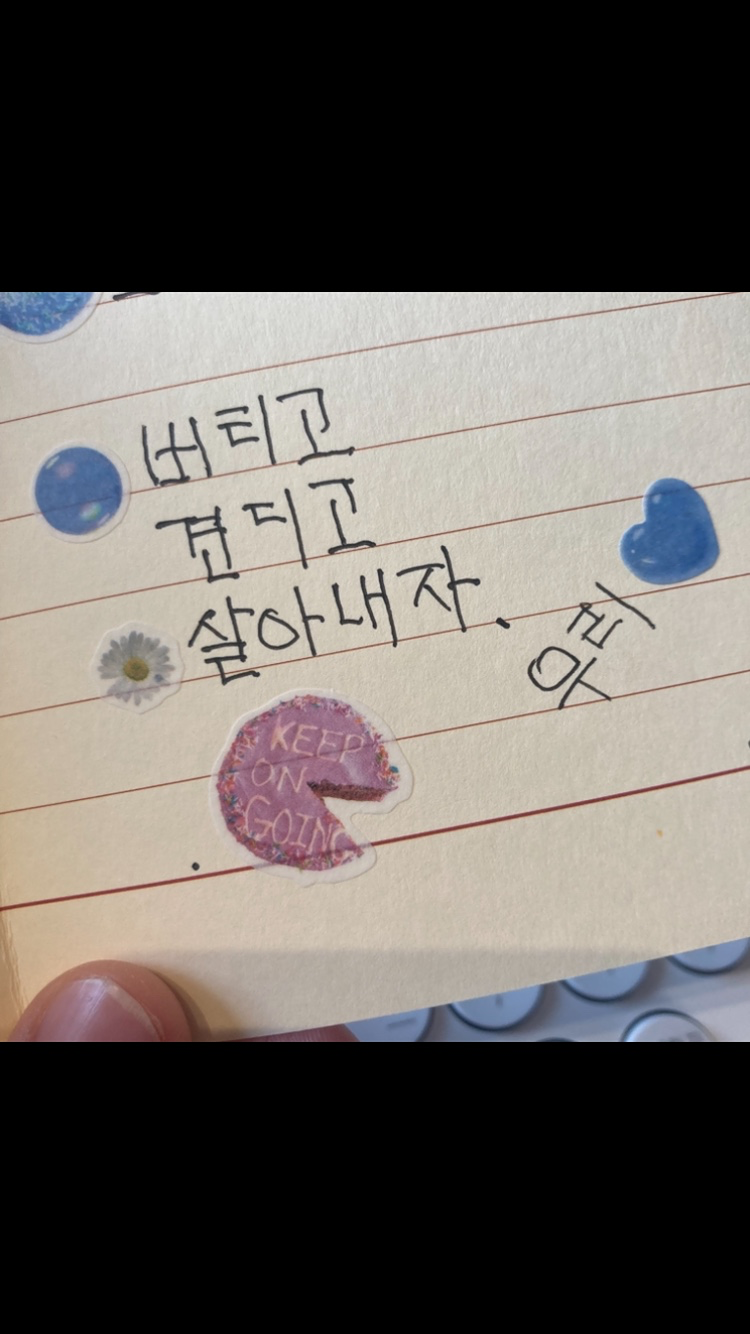 버티고
견디고
살아내자.
우리
KEEP
ON
GOING